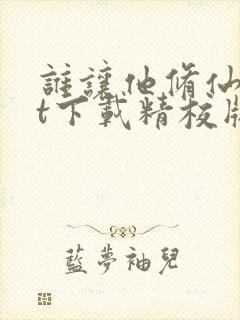 誰讓他脩仙
t下載精校版
藍夢袖兒